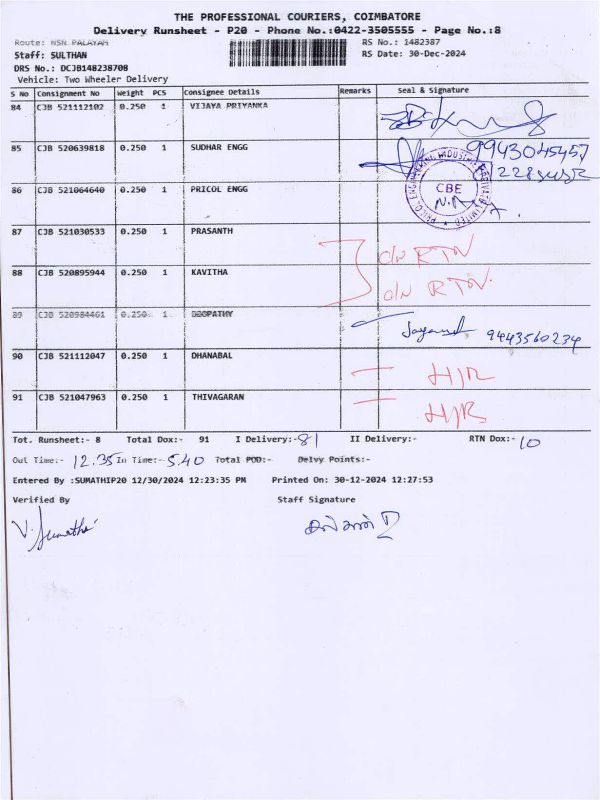 THE PROFESSIONAL COURIERS, COIMBATORE
Delivery Runsheet - P20 - Phone No.:0422-3505555 - Page No.:8
Route: NSN PALAYAM
RS No.: 1482387
Staff: SULTHAN
RS Date: 30-Dec-2024
DRS No.: DCJB148238708
Vehicle: Two Wheeler Delivery
S No Consignment No Weight PCS Consignee Details Remarks Seal & Signature
84 CJB 521112102 0.250 1 VIJAYA PRIYANKA
85 CJB 520639818 0.250 1 SUDHAR ENGG 9943045457
86 CJB 521064640 0.250 1 PRICOL ENGG CBE
87 CJB 521030533 0.250 1 PRASANTH D/N RTN
88 CJB 520895944 0.250 1 KAVITHA D/N RTN
89 CJB 520984461 0.250 1 BOOPATHY 9443560234
90 CJB 521112047 0.250 1 DHANABAL
91 CJB 521047963 0.250 1 THIVAGARAN
Tot. Runsheet:- 8 Total Dox:- 91 I Delivery:- 81 II Delivery:- RTN Dox:- 10
Out Time:- 12.35 In Time:- 5.40 Total POD:- Delvy Points:-
Entered By :SUMATHIP20 12/30/2024 12:23:35 PM Printed On: 30-12-2024 12:27:53
Verified By Staff Signature
V. Sumathi